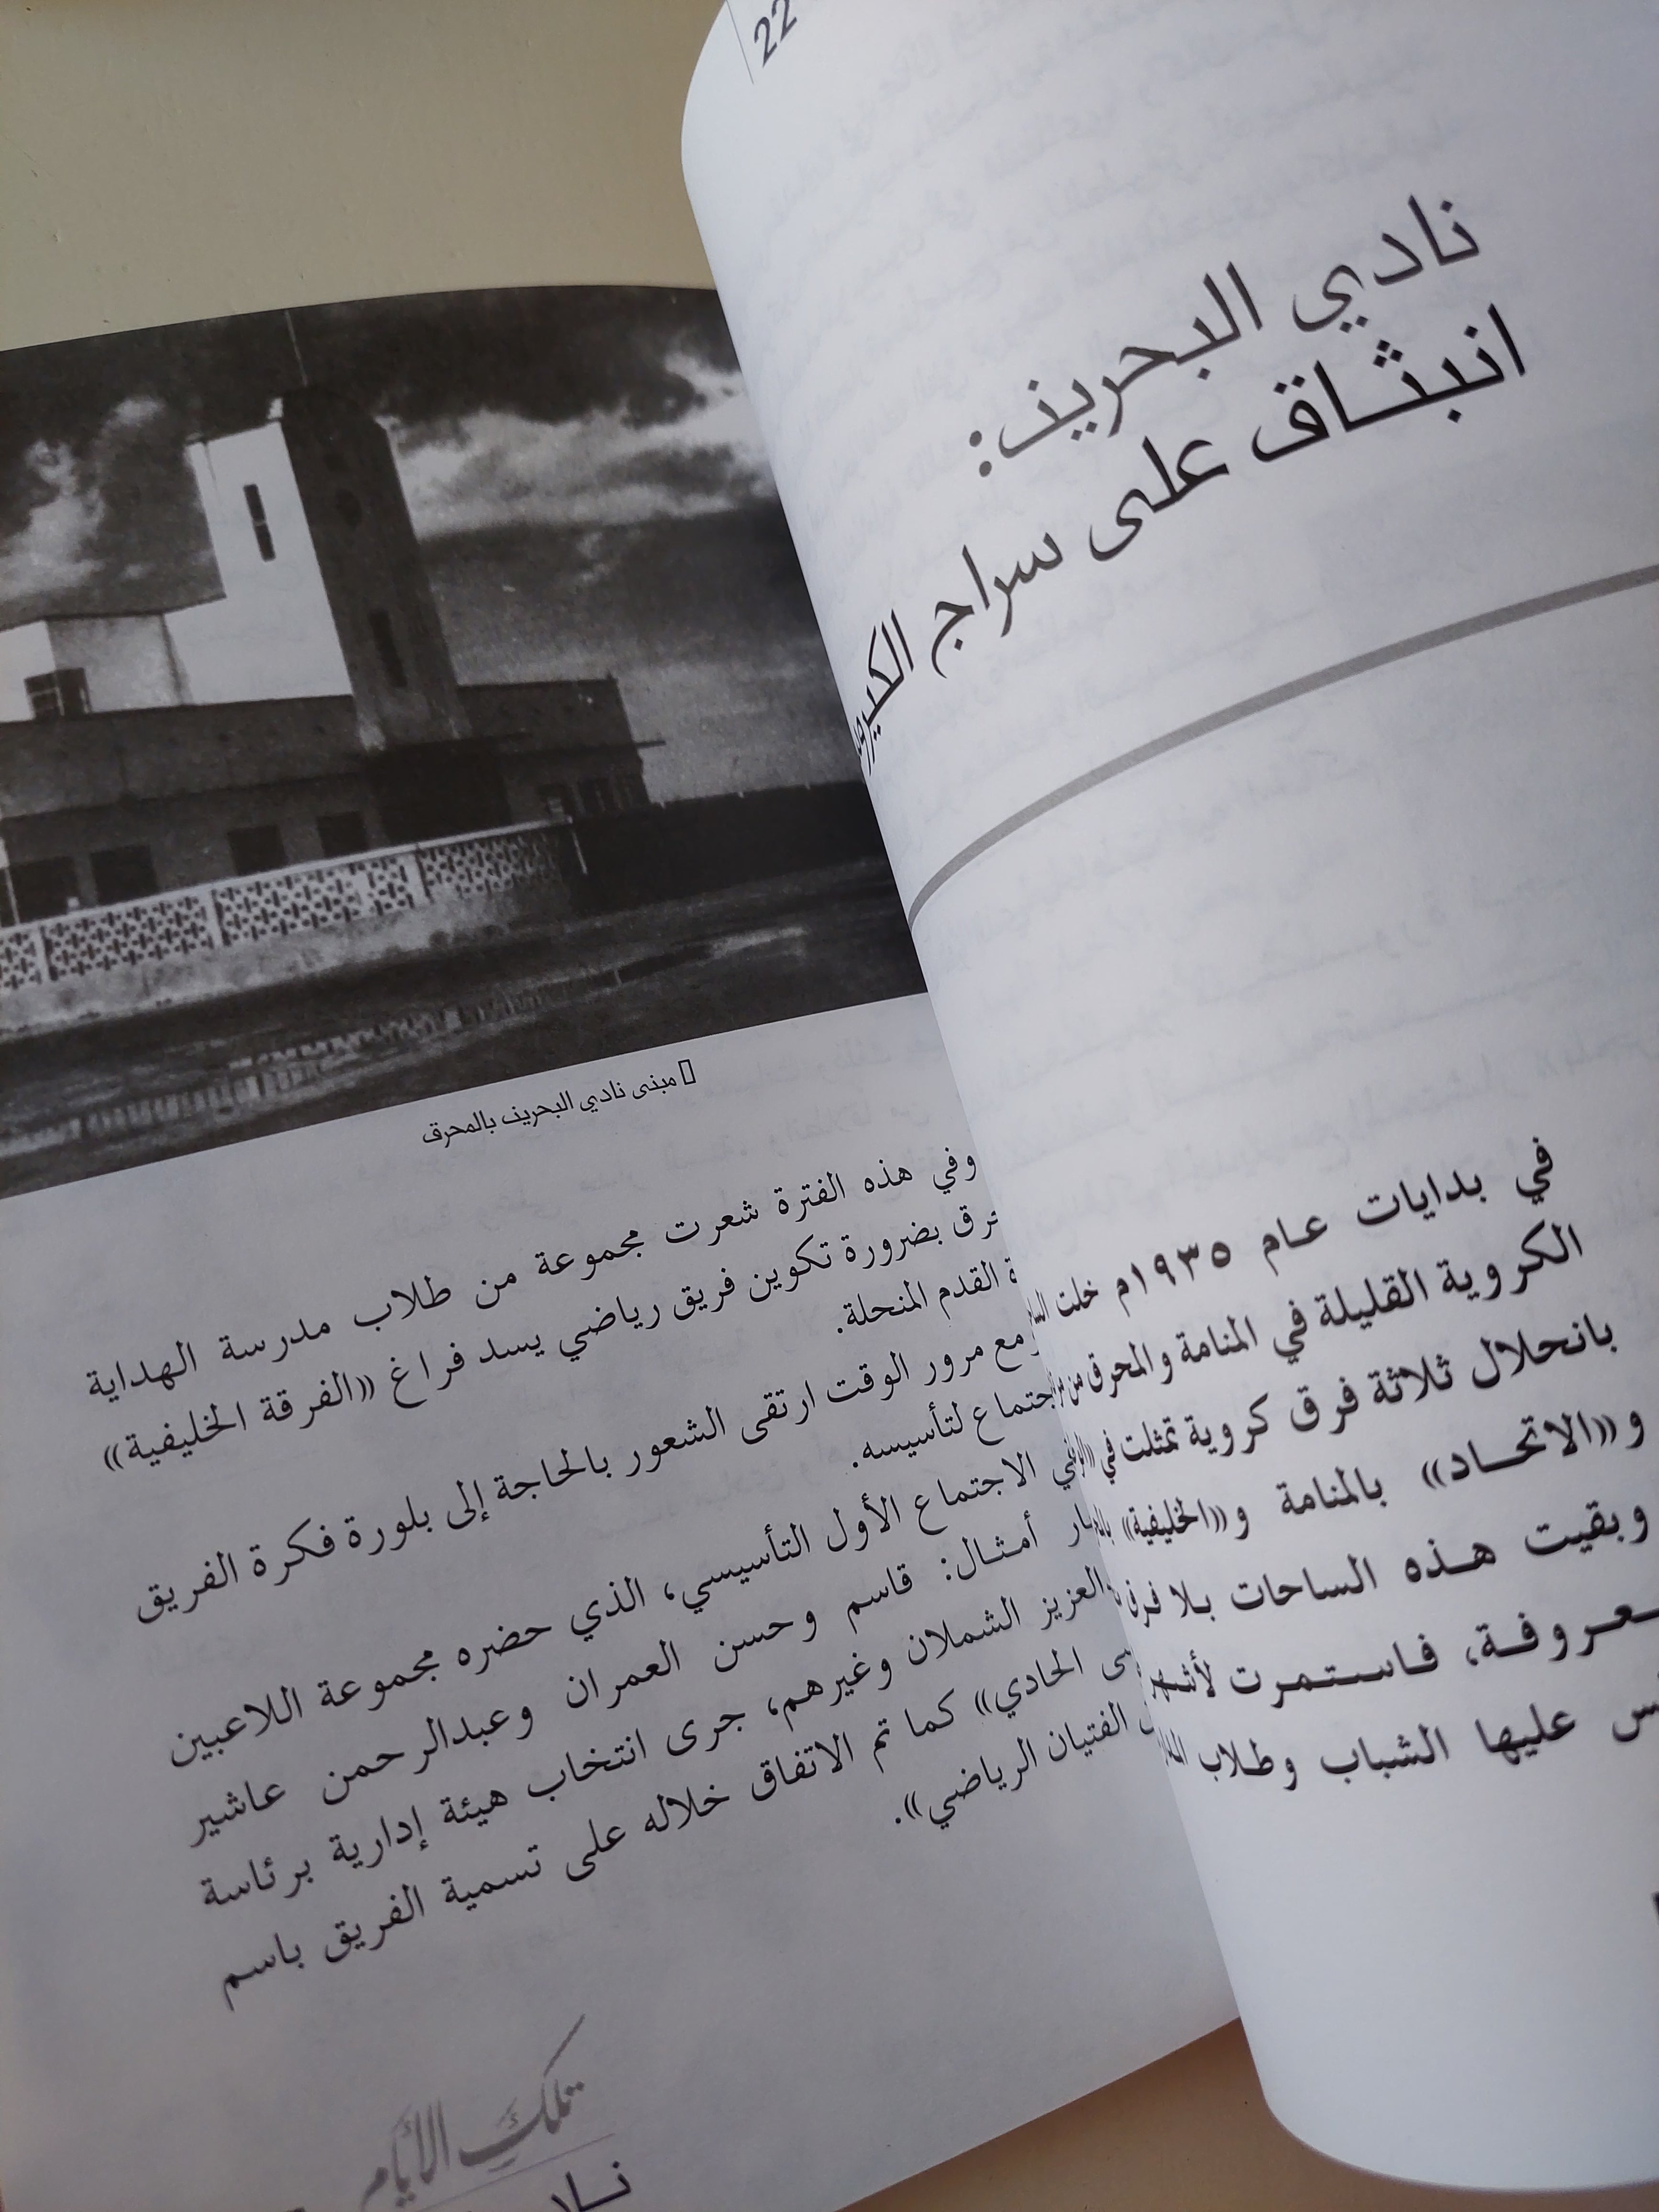 22
نادي البحرين:
انبثاق على سراج الكيروسين
في بدايات عام ١٩٣٥م خلت
الكروية القليلة في المنامة والمحرق من
بانحلال ثلاثة فرق كروية تمثلت في
و«الاتحاد» بالمنامة و«الخليفية»
وبقيت هذه الساحات بلا فرق
فاستمرت لأشهر
عليها الشباب وطلاب
مبنى نادي البحرين بالمحرق
وفي هذه الفترة شعرت مجموعة من طلاب مدرسة الهداية
بضرورة تكوين فريق رياضي يسد فراغ «الفرقة الخليفية»
القدم المنحلة.
مع مرور الوقت ارتقى الشعور بالحاجة إلى بلورة فكرة الفريق
لتأسيسه.
الاجتماع الأول التأسيسي، الذي حضره مجموعة اللاعبين
أمثال: قاسم وحسن العمران وعبدالرحمن عاشير
الشملان وغيرهم، جرى انتخاب هيئة إدارية برئاسة
الحادي» كما تم الاتفاق خلاله على تسمية الفريق باسم
الفتيان الرياضي».
تلك الأيام